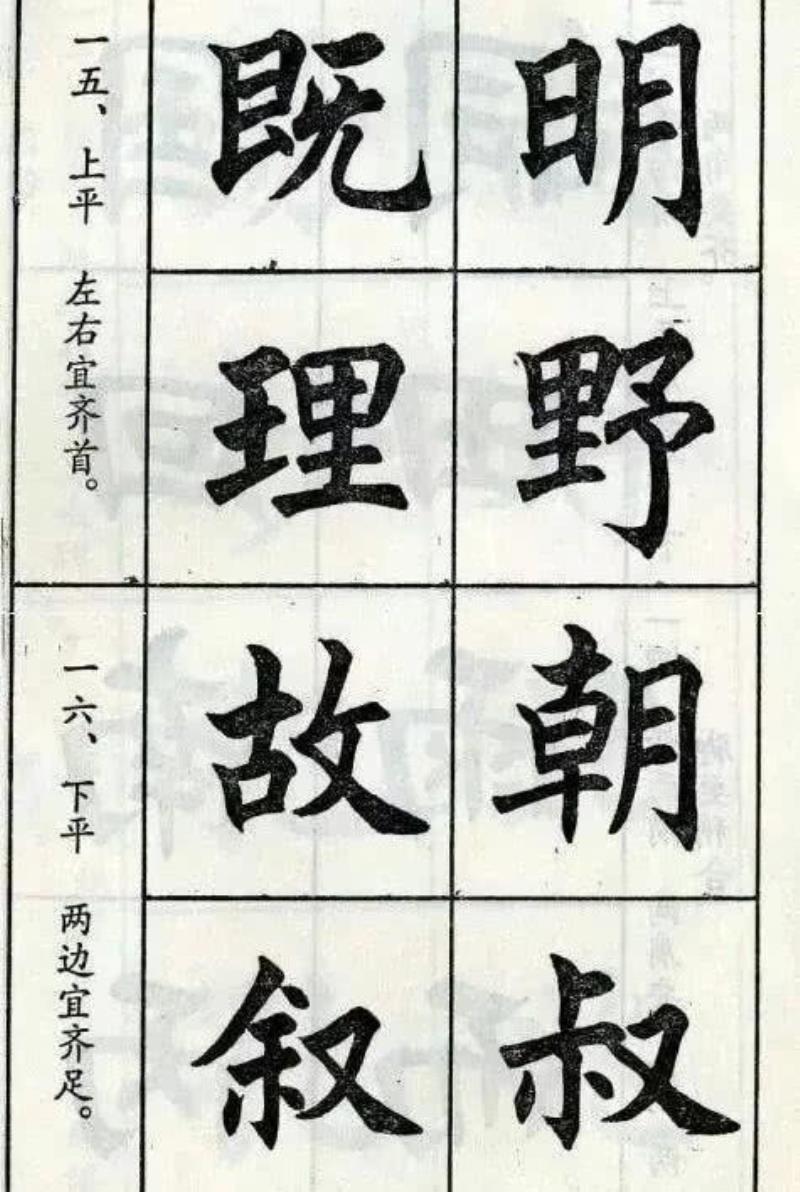 一五、上平 左右宜齐首。
既明
理野
一六、下平 两边宜齐足。
故朝
叙叔